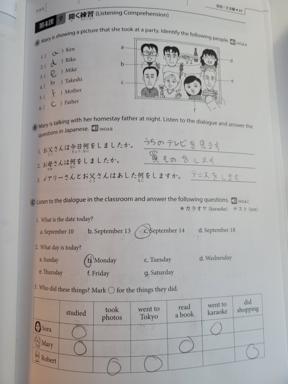 第4課 9 聞く練習 (Listening Comprehension)
A Mary is showing a picture that she took at a party. Identify the following people. W04-A
1. ( a ) Ken
2. ( d ) Rika
3. ( e ) Mike
4. ( b ) Takeshi
5. ( f ) Mother
6. ( c ) Father
a
b
c
d
e
f
B Mary is talking with her homestay father at night. Listen to the dialogue and answer the questions in Japanese. W04-B
1. お父さんは今日何をしましたか。
2. お母さんは何をしましたか。
3. メアリーさんとお父さんはあした何をしますか。 テニスをします
C Listen to the dialogue in the classroom and answer the following questions. W04-C
*カラオケ (karaoke) *テスト (test)
1. What is the date today?
a. September 10 b. September 13 c. September 14 d. September 18
2. What day is today?
a. Sunday b. Monday c. Tuesday d. Wednesday
e. Thursday f. Friday g. Saturday
3. Who did these things? Mark ○ for the things they did.
studied took photos went to Tokyo read a book went to karaoke did shopping
Sora
Mary
Robert